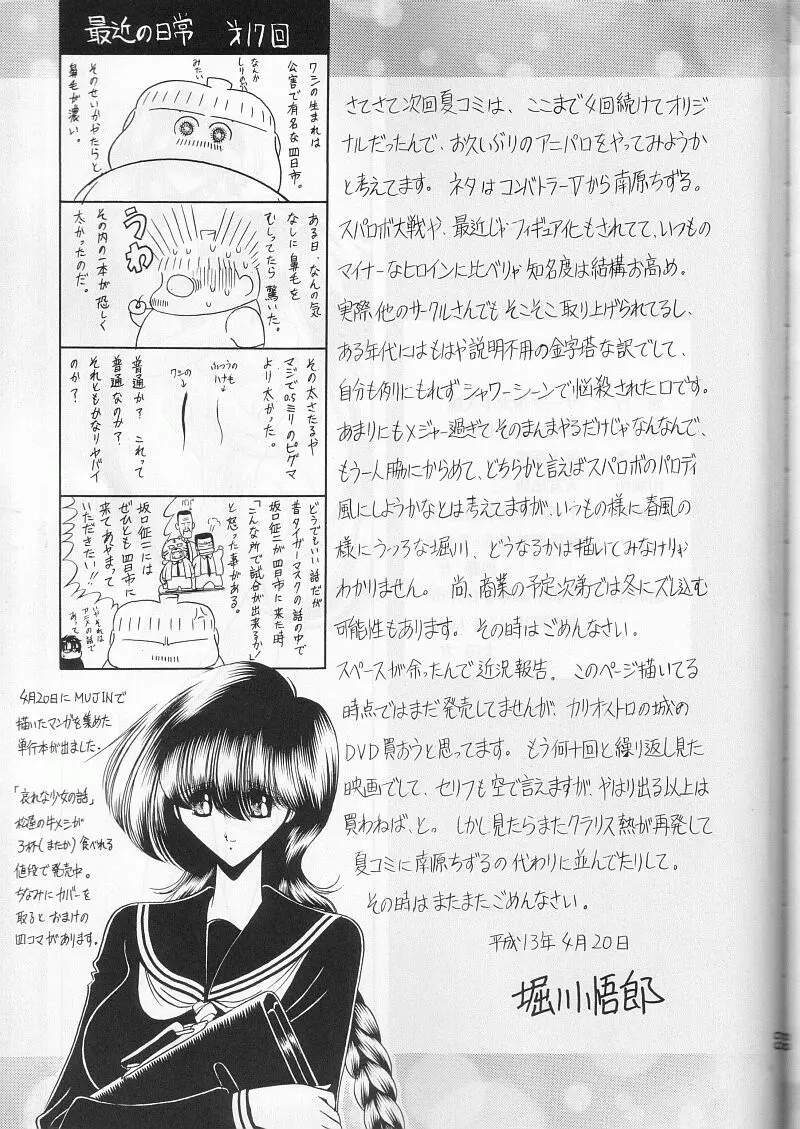 最近の日常　第17回
ワシの生まれは
公害で有名な四日市。
なんか
しりの穴
みたい
そのせいかやたらと
鼻毛が濃い。
ある日、なんの気
なしに鼻毛を
むしってたら驚いた。
うわ
その内の一本が恐しく
太かったのだ。
その太さたるや
マジで0.5ミリのピグマ
より太かった。
ふつうの
ハナ毛
ワシの
普通か？これって
普通なのか？
それともかなりヤバイ
のか？
どうでもいい話だが
昔タイガーマスクの話の中で
坂口征二が四日市に来た時
「こんな所で試合が出来るか！」
と怒った事がある。
坂口征二には
ぜひとも四日市に
来てあやまって
いただきたい！！
いやそれは
アニメの話で
あって
さてさて次回夏コミは、ここまで4回続けてオリジ
ナルだったんで、お久しぶりのアニパロをやってみようか
と考えてます。ネタはコンバトラーVから南原ちずる。
スパロボ大戦や、最近じゃフィギュア化もされてて、いつもの
マイナーなヒロインに比べりゃ知名度は結構お高め。
実際他のサークルさんでもそこそこ取り上げられてるし、
ある年代にはもはや説明不用の金字塔な訳でして、
自分も例にもれずシャワーシーンで悩殺された口です。
あまりにもメジャー過ぎてそのまんまやるだけじゃなんなんで、
もう一人脇にからめて、どちらかと言えばスパロボのパロディ
風にしようかなとは考えてますが、いつもの様に春風の
様にうつろな堀川、どうなるかは描いてみなけりゃ
わかりません。尚、商業の予定次第では冬にズレ込む
可能性もあります。その時はごめんなさい。
スペースが余ったんで近況報告。このページ描いてる
時点ではまだ発売してませんが、カリオストロの城の
DVD買おうと思ってます。もう何十回と繰り返し見た
映画でして、セリフも空で言えますが、やはり出る以上は
買わねば、と。しかし見たらまたクラリス熱が再発して
夏コミに南原ちずるの代わりに並んでたりして。
その時はまたまたごめんなさい。
平成13年4月20日
堀川悟郎
4月20日にMUJINで
描いたマンガを集めた
単行本が出ました。
「哀れな少女の話」
松屋の牛メシが
3杯(またか)食べれる
値段で発売中。
ちなみにカバーを
取るとおまけの
四コマがあります。